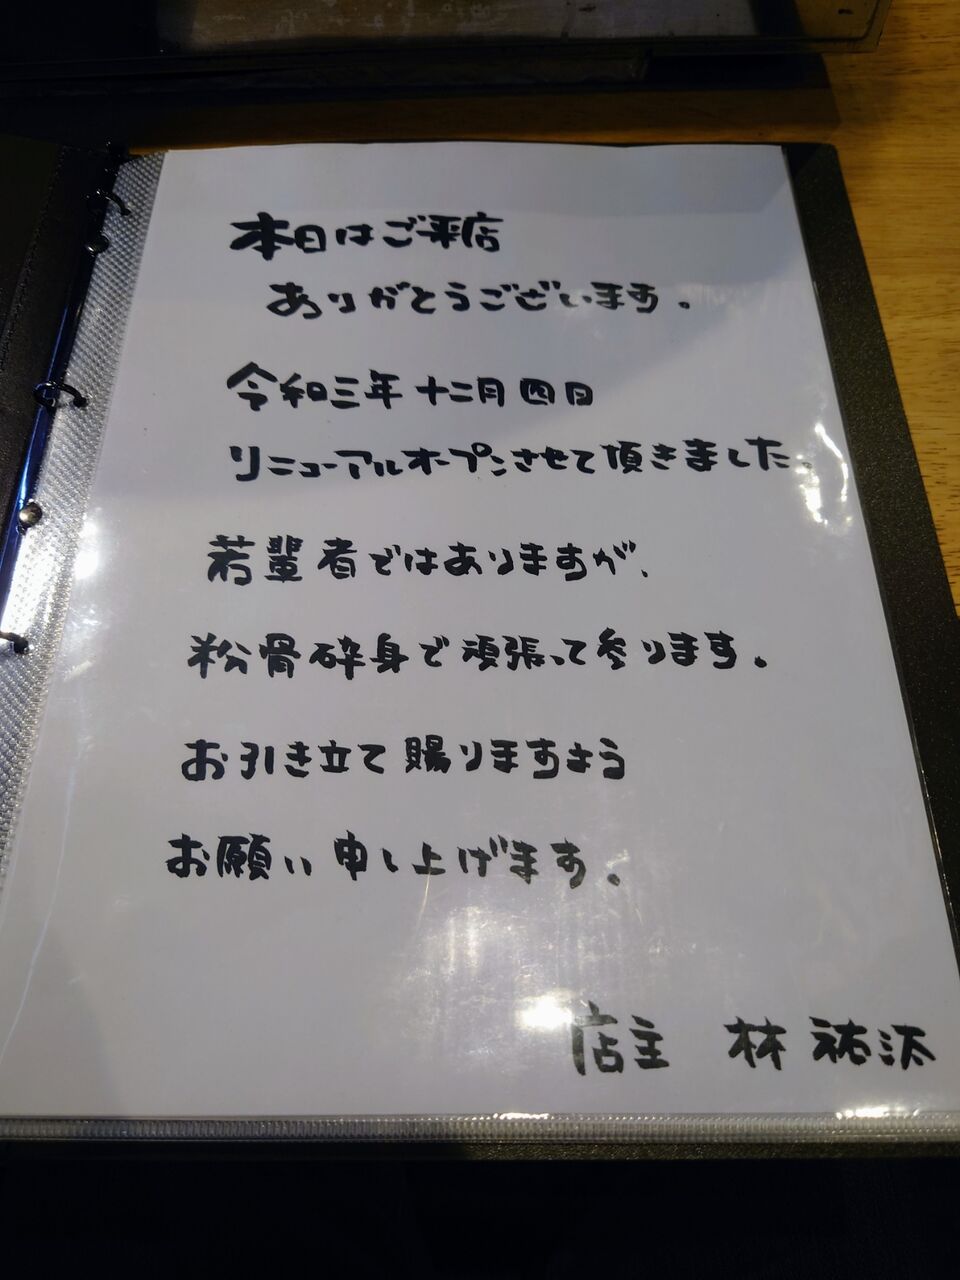 本日はご来店
ありがとうございます。
令和三年 十二月四日
リニューアルオープンさせて頂きました。
若輩者ではありますが、
粉骨砕身で頑張って参ります。
お引き立て賜りますよう
お願い申し上げます。
店主 林 祐汰